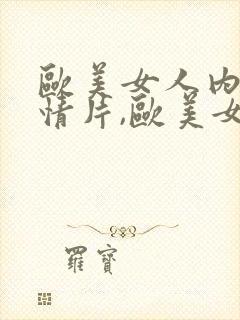 歐美女人內
情片,歐美女
羅寶